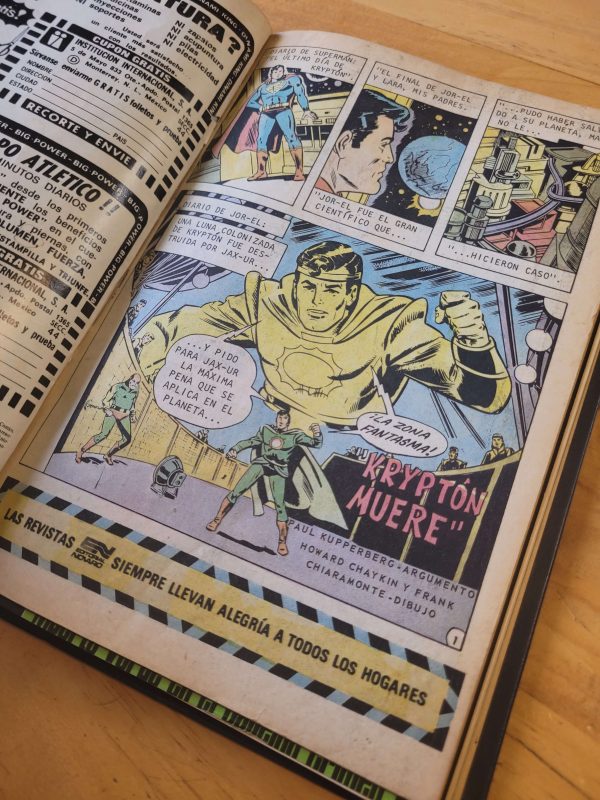 TURA?
NI zapatos
Ni acupuntura
Ni pilas
electricidad
CUPON GRATIS
INSTITUCION INTERNACIONAL S. A.
5 de Mayo 833 Pte. Apdo. Postal 1365
Monterrey, N. L. Mexico
Sírvanse enviarme GRATIS folletos y prueba
NOMBRE
DIRECCION
CIUDAD
ESTADO
PAIS
RECORTE Y ENVIE
BIG POWER-BIG POWER-BIG POWER
PO ATLETICO!!
MINUTOS DIARIOS
desde los primeros
los beneficios
POWER"
piernas, con
VOLUMEN, FUERZA
ESTAMPILLA Y TRIUNFE
GRATIS
NACIONAL, S. A.
Apdo. Postal 1365
Mexico
folletos y prueba
DIARIO DE SUPERMAN:
"EL ÚLTIMO DÍA DE
KRYPTÓN".
"EL FINAL DE JOR-EL
Y LARA, MIS PADRES.
"JOR-EL FUE EL GRAN
CIENTÍFICO QUE...
"...PUDO HABER SAL
DO A SU PLANETA, MA
NO LE...
"...HICIERON CASO"
DIARIO DE JOR-EL:
UNA LUNA COLONIZADA
DE KRYPTÓN FUE DES-
TRUIDA POR JAX-UR...
...Y PIDO
PARA JAX-UR
LA MÁXIMA
PENA QUE SE
APLICA EN EL
PLANETA...
¡LA ZONA
FANTASMA!
KRYPTÓN
MUERE"
PAUL KUPPERBERG-ARGUMENTO
HOWARD CHAYKIN Y FRANK
CHIARAMONTE-DIBUJO
1
LAS REVISTAS EDITORIAL NOVARO SIEMPRE LLEVAN ALEGRÍA A TODOS LOS HOGARES